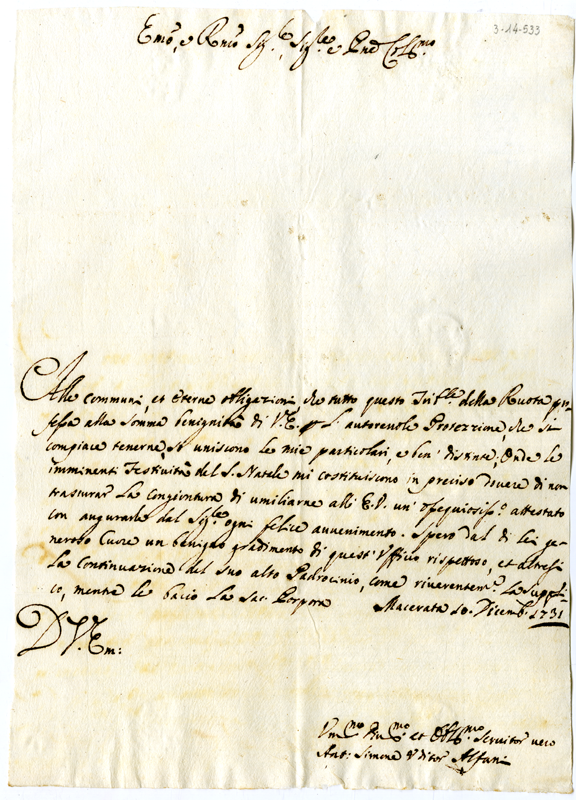 3-14-533
Emo, e Rmo Sig.re Sig.re e Pne Colmo
Alle communi, et eterne obligazioni che tutto questo Trible. della Ruota pro
fessa alla somma benignità di V.E. p l'autorevole Protezzione, che si
compiace tenerne, si uniscono le mie particolari, e ben' distinte, Onde le
imminenti Festività del S. Natale mi costituiscono in preciso dovere di non
trasurar la congiontura di umiliarne all' E.V. un' ossequiosiss.o attestato
con augurarle dal Sig.re ogni felice avvenimento. Spero dal di lei ge-
neroso Cuore un benigno gradimento di quest' Ufficio rispettoso, et altresì
la Continuazione del suo alto Padrocinio, come riverentem.e la suppli-
co, mentre le bacio la Sac. Porpora Macerata 10. Dicemb. 1731
D V. Em:
Um.mo Dev.mo et Obl.mo Servitor vero
Ant: Simone Uditor Alfani